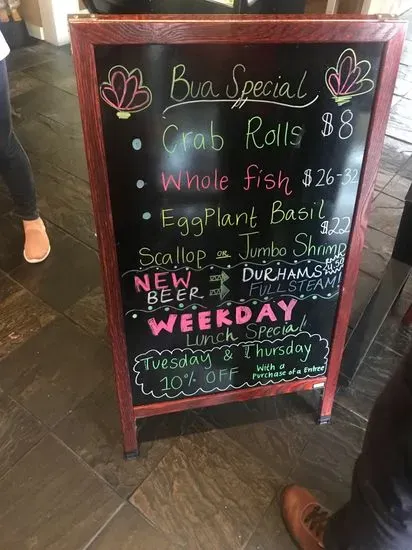 Bua Special
Crab Rolls $8
Whole fish $26-32
EggPlant Basil
$22
Scallop or Jumbo Shrimp
NEW BEER
DURHAMS
FULLSTEAM!
WEEKDAY
Lunch Special
Tuesday & Thursday
10% OFF With a
Purchase of a Entree